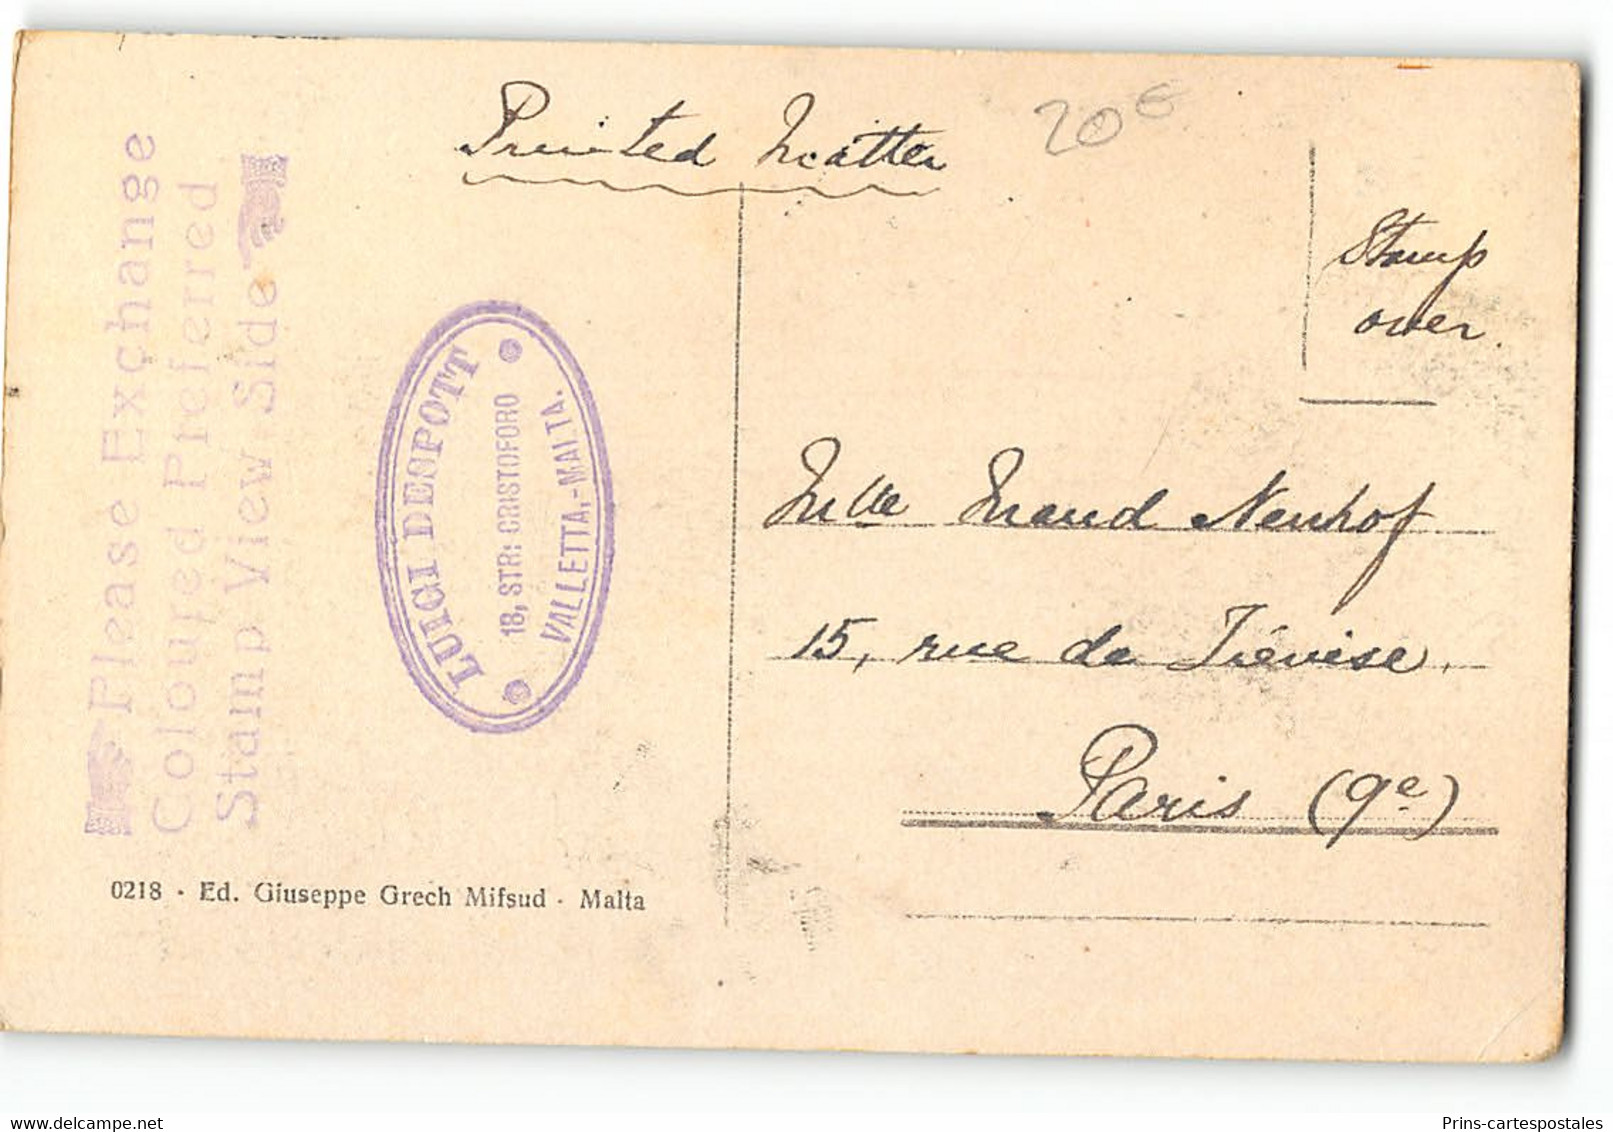 Printed Matter
20€
Stamp
over.
Please Exchange
Coloured Preferred
Stamp View Side
LUIGI DESPOTT
18, STR: CRISTOFORO
VALLETTA,-MALTA.
Mlle Maud Neuhof
15, rue de Trévise.
Paris (9e)
0218 - Ed. Giuseppe Grech Mifsud - Malta
www.delcampe.net
Prins-cartespostales